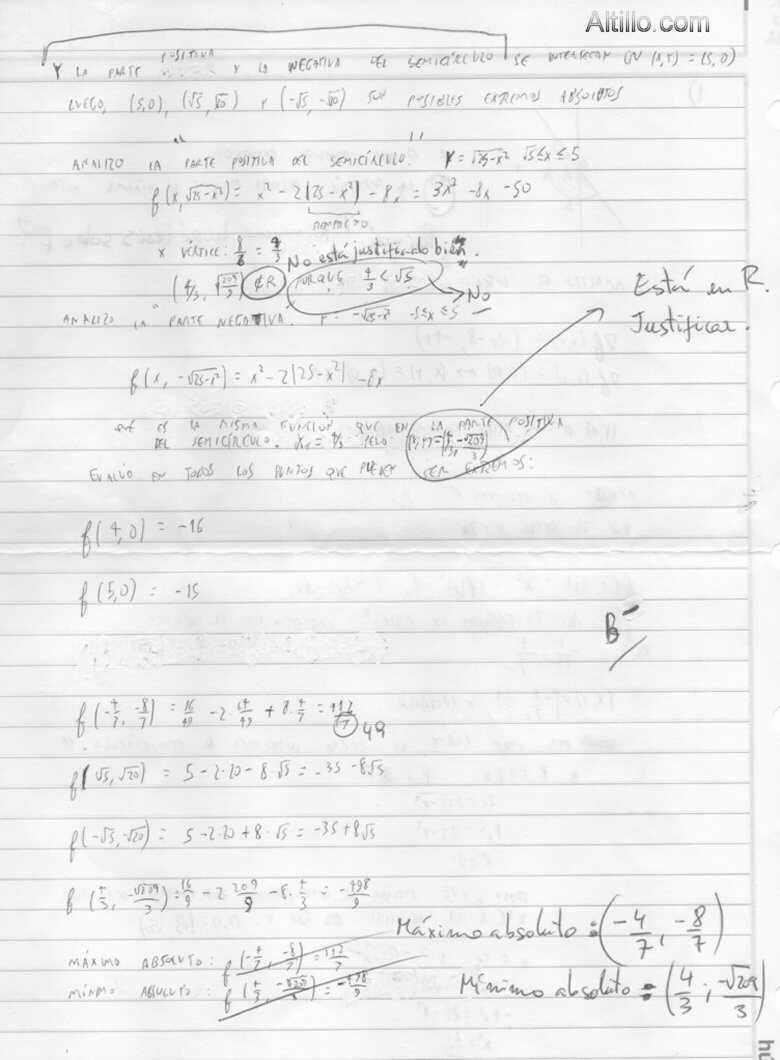 Altillo.com
Y LA PARTE POSITIVA Y LA NEGATIVA DEL SEMICÍRCULO SE INTERSECAN EN (X,Y) = (5,0)
LUEGO, (5,0), (√5, √20) Y (-√5, -√20) SON POSIBLES EXTREMOS ABSOLUTOS
ANALIZO LA PARTE POSITIVA DEL SEMICÍRCULO. Y = √25-x² √5≤x≤5
f(x, √25-x²) = x² - 2|25-x²| - 8x = 3x² - 8x - 50
x VÉRTICE: 8/6 = 4/3 No está justificado bien.
(4/3, √209/3) ∉ R PORQUE 4/3 < √5 → No
Está en R.
Justificar.
ANALIZO LA PARTE NEGATIVA. Y = -√25-x² -√5≤x≤5
f(x, -√25-x²) = x² - 2|25-x²| - 8x
QUE ES LA MISMA FUNCIÓN QUE EN LA PARTE POSITIVA
DEL SEMICÍRCULO. Xv = 4/3 PERO (X,Y) = (4/3, -√209/3)
EVALÚO EN TODOS LOS PUNTOS QUE PUEDEN SER EXTREMOS:
f(4,0) = -16
f(5,0) = -15
B-
f(-4/7, -8/7) = 16/49 - 2·64/49 + 8·4/7 = 112/7 49
f(√5, √20) = 5 - 2·20 - 8·√5 = -35 - 8√5
f(-√5, -√20) = 5 - 2·20 + 8·√5 = -35 + 8√5
f(4/3, -√209/3) = 16/9 - 2 209/9 - 8·4/3 = -498/9
Máximo absoluto : (-4/7, -8/7)
MÁXIMO ABSOLUTO: f(-4/7, -8/7) = 112/7
MÍNIMO ABSOLUTO: f(4/3, -√209/3) = -498/9
Mínimo absoluto : (4/3 ; -√209/3)